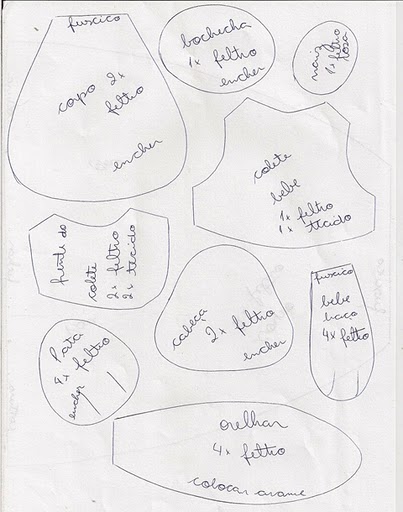 fuxico
corpo 2x
feltro
encher
bochecha
1x feltro
encher
nariz
1x feltro
rosa
colete
bebe
1x feltro
1x tecido
frente do
colete
2x feltro
2x tecido
cabeça
2x feltro
encher
fuxico
bebe
braço
4x feltro
Pata
4x feltro
encher
orelhas
4x feltro
colocar arame